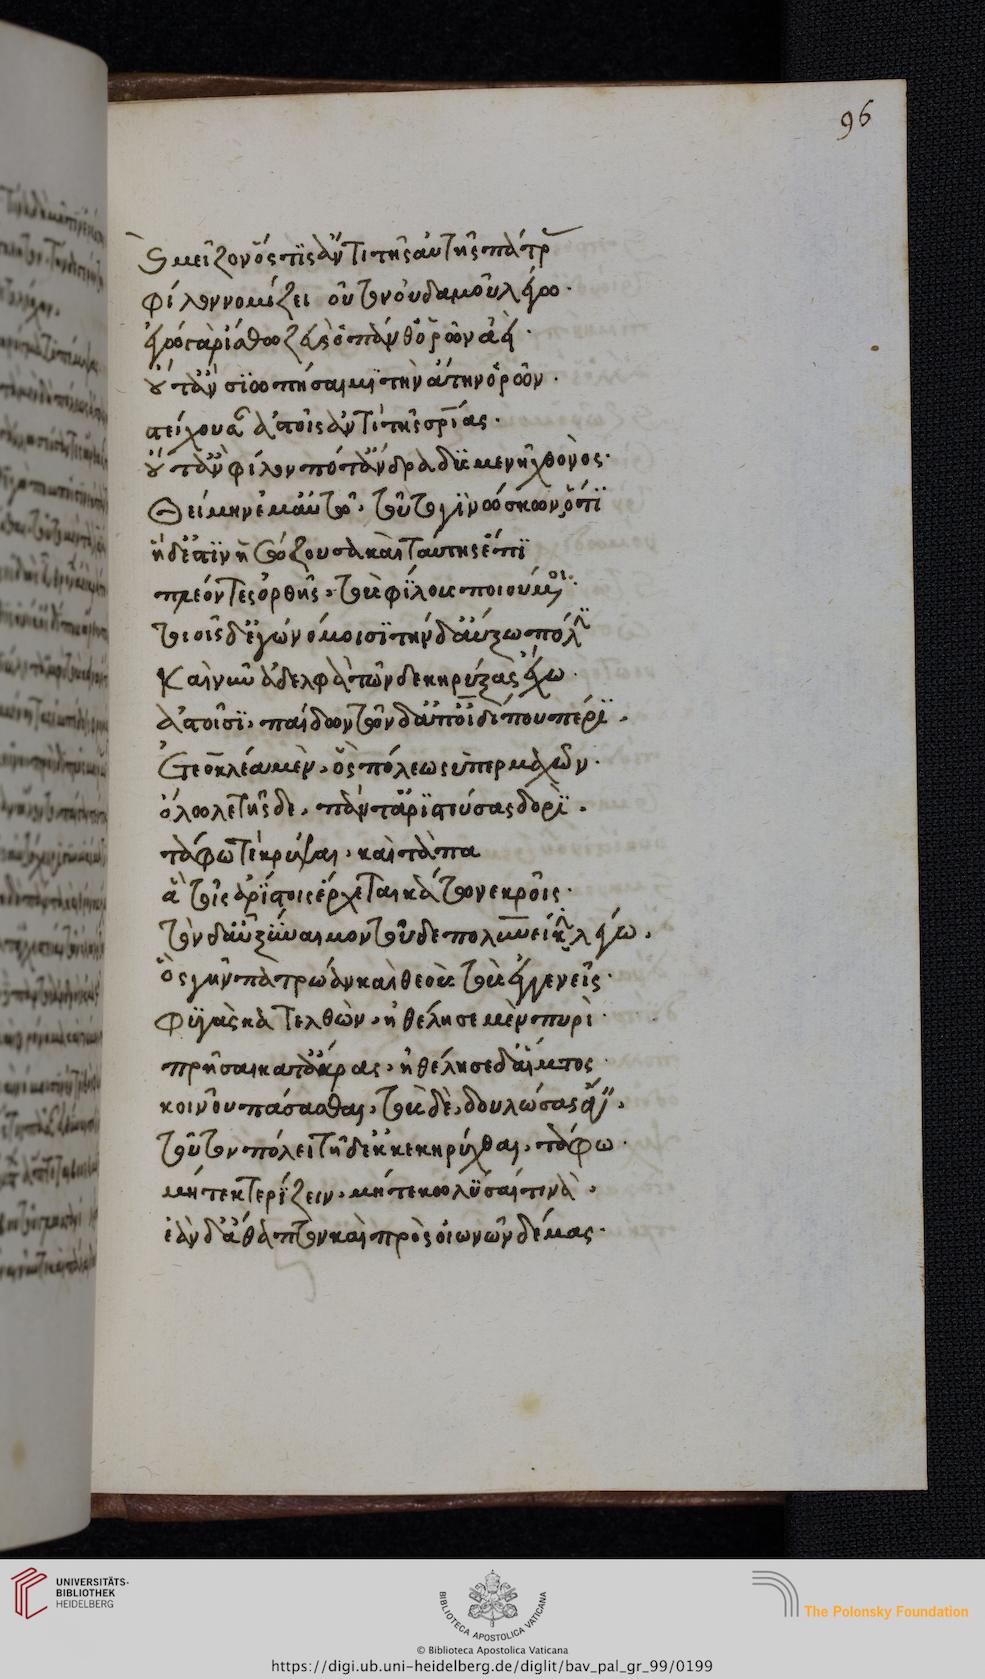 96
καὶ μεῖζον ὅς τις ἀντὶ τῆς αὐτῆς πάτρας
φίλον νομίζει τοῦτον οὐδαμοῦ λέγω·
ἐγὼ γὰρ ἴστω ζεὺς ὁ πάνθ' ὁρῶν ἀεί·
οὔτ' ἂν σιωπήσαιμι τὴν ἄτην ὁρῶν·
στείχουσαν ἀστοῖς ἀντὶ τῆς σρίας·
οὔτ' ἂν φίλον ποτ' ἄνδρα δυσμενῆ χθονὸς·
θείμην ἐμαυτῷ, τοῦτο γινώσκων ὅτι
ἥδ' ἐστὶν ἡ σώζουσα καὶ ταύτης ἔπι
πλέοντες ὀρθῆς, τοὺς φίλους ποιούμεθα·
τοιοῖσδ' ἐγὼ νόμοισι τήνδ' αὔξω πόλιν
Καὶ νῦν ἀδελφὰ τῶνδε κηρύξας ἔχω·
ἀστοῖσι, παίδων τῶνδ' ἀπ' οἰδίπου πέρι,
Ἐτεοκλέα μὲν, ὃς πόλεως ὑπερμαχῶν·
ὄλωλε τῆσδε, πάντ' ἀριστεύσας δορί,
τάφω τε κρύψαι, καὶ τὰ πα
ἃ τοῖς ἀρίστοις ἔρχεται κάτω νεκροῖς·
τὸν δ' αὖ ξύναιμον τοῦδε πολυνείκην λέγω,
ὃς γῆν πατρῴαν καὶ θεοὺς τοὺς ἐγγενεῖς·
φυγὰς κατελθὼν, ἠθέλησε μὲν πυρὶ·
πρῆσαι κατάκρας, ἠθέλησε δ' αἵματος·
κοινοῦ πάσασθαι, τοὺς δὲ, δουλώσας ἄγειν,
τοῦτον πόλει τῇδ' ἐκκεκηρύχθαι, τάφω·
μήτε κτερίζειν, μήτε κωλῦσαί τινα,
ἐᾶν δ' ἄθαπτον καὶ πρὸς οἰωνῶν δέμας·
UNIVERSITÄTS-
BIBLIOTHEK
HEIDELBERG
BIBLIOTECA APOSTOLICA VATICANA
The Polonsky Foundation
© Biblioteca Apostolica Vaticana
https://digi.ub.uni-heidelberg.de/diglit/bav_pal_gr_99/0199